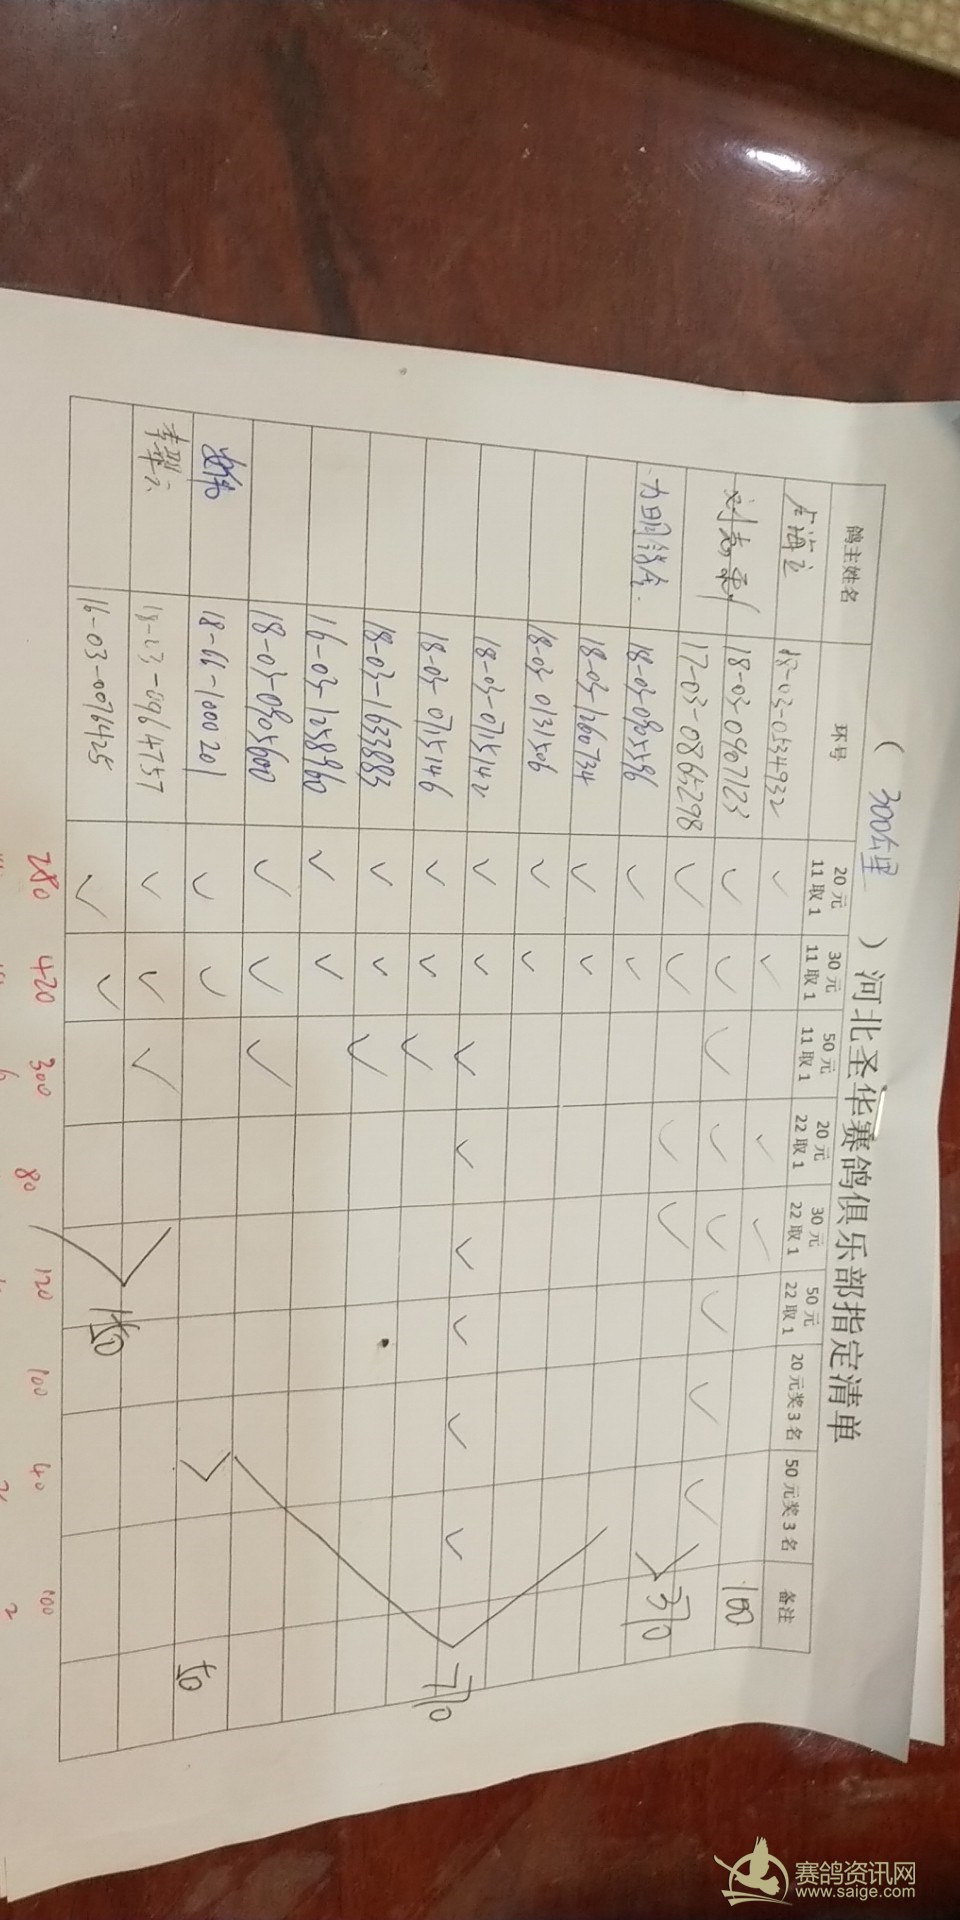 （ 300公里 ）河北圣华赛鸽俱乐部指定清单
鸽主姓名 环号 20元 11取1 30元 11取1 50元 11取1 20元 22取1 30元 22取1 50元 22取1 20元奖3名 50元奖3名 备注
18-03-0534932 ✓ ✓ ✓ ✓ 100
18-03-0907123 ✓ ✓ ✓ ✓ ✓ ✓ ✓ ✓
17-03-0865298 ✓ ✓ ✓ ✓ 370
18-03-0905596 ✓ ✓
18-03-1260734 ✓ ✓
18-03-0131506 ✓ ✓
18-03-0715142 ✓ ✓ ✓ ✓ ✓ ✓ ✓ ✓ 770
18-03-0715146 ✓ ✓ ✓
18-03-1633883 ✓ ✓ ✓
16-03-1258960 ✓ ✓
18-03-0905600 ✓ ✓ ✓
18-66-100201 ✓ ✓ 50
✓ ✓ ✓
16-03-0076425 ✓ ✓
280 420 300 80 120 100 40 100
赛鸽资讯网
www.saige.com